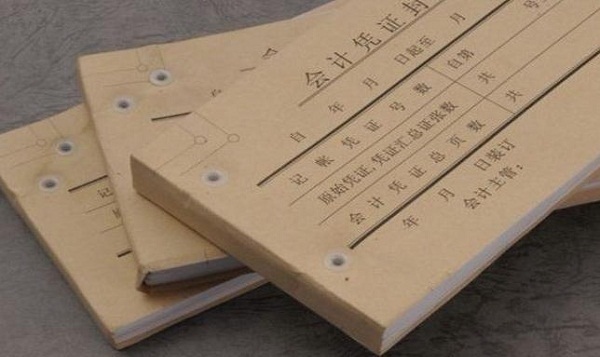 会计凭证封
自 年 月 日起至 月
记帐凭证号数 自第 号
原始凭证,凭证汇总证张数 共
会计凭证总页数 共
年 月 日装订
会计主管:
记